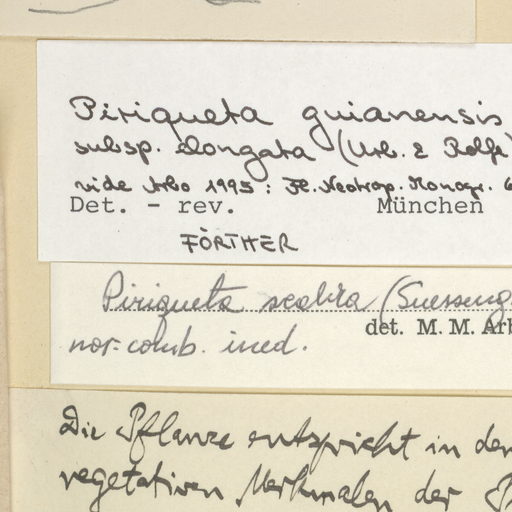 Piriqueta guianensis
subsp. elongata (Urb. & Rolfe)
vide Arbo 1995: Fl. Neotrop. Monogr. 6
Det. - rev. München
FÖRTHER
Piriqueta scabra (Suesseng
nov. comb. ined.
det. M. M. Arb
Die Pflanze entspricht in den
vegetativen Merkmalen der P